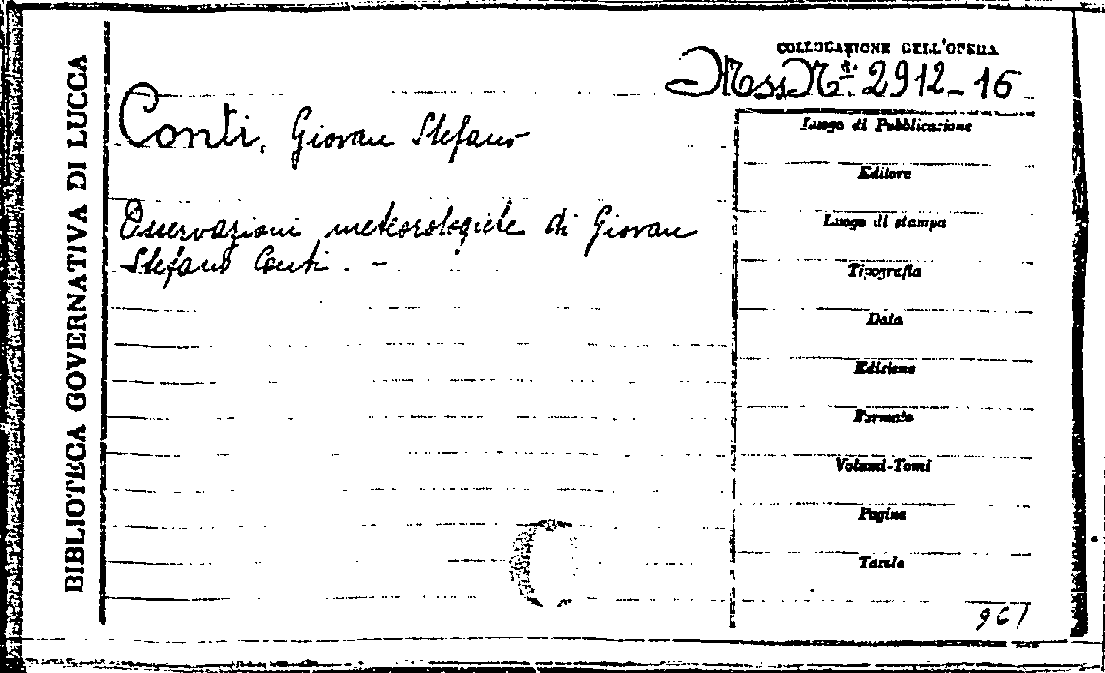 BIBLIOTECA GOVERNATIVA DI LUCCA
COLLOCAZIONE DELL'OPERA
Mss. Nⁱ. 2912-16
Conti, Giovan Stefano
Osservazioni meteorologiche di Giovan
Stefano Conti. -
Luogo di Pubblicazione
Editore
Luogo di stampa
Tipografia
Data
Edizione
Formato
Volumi-Tomi
Pagine
Tavole
961